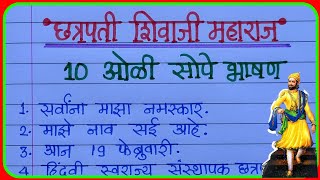 "छत्रपती शिवाजी महाराज"
10 ओळी सोपे भाषण
1. सर्वांना माझा नमस्कार.
2. माझे नाव सई आहे.
3. आज 19 फेब्रुवारी.
4 हिंदवी स्वराज्य संस्थापक छत्र